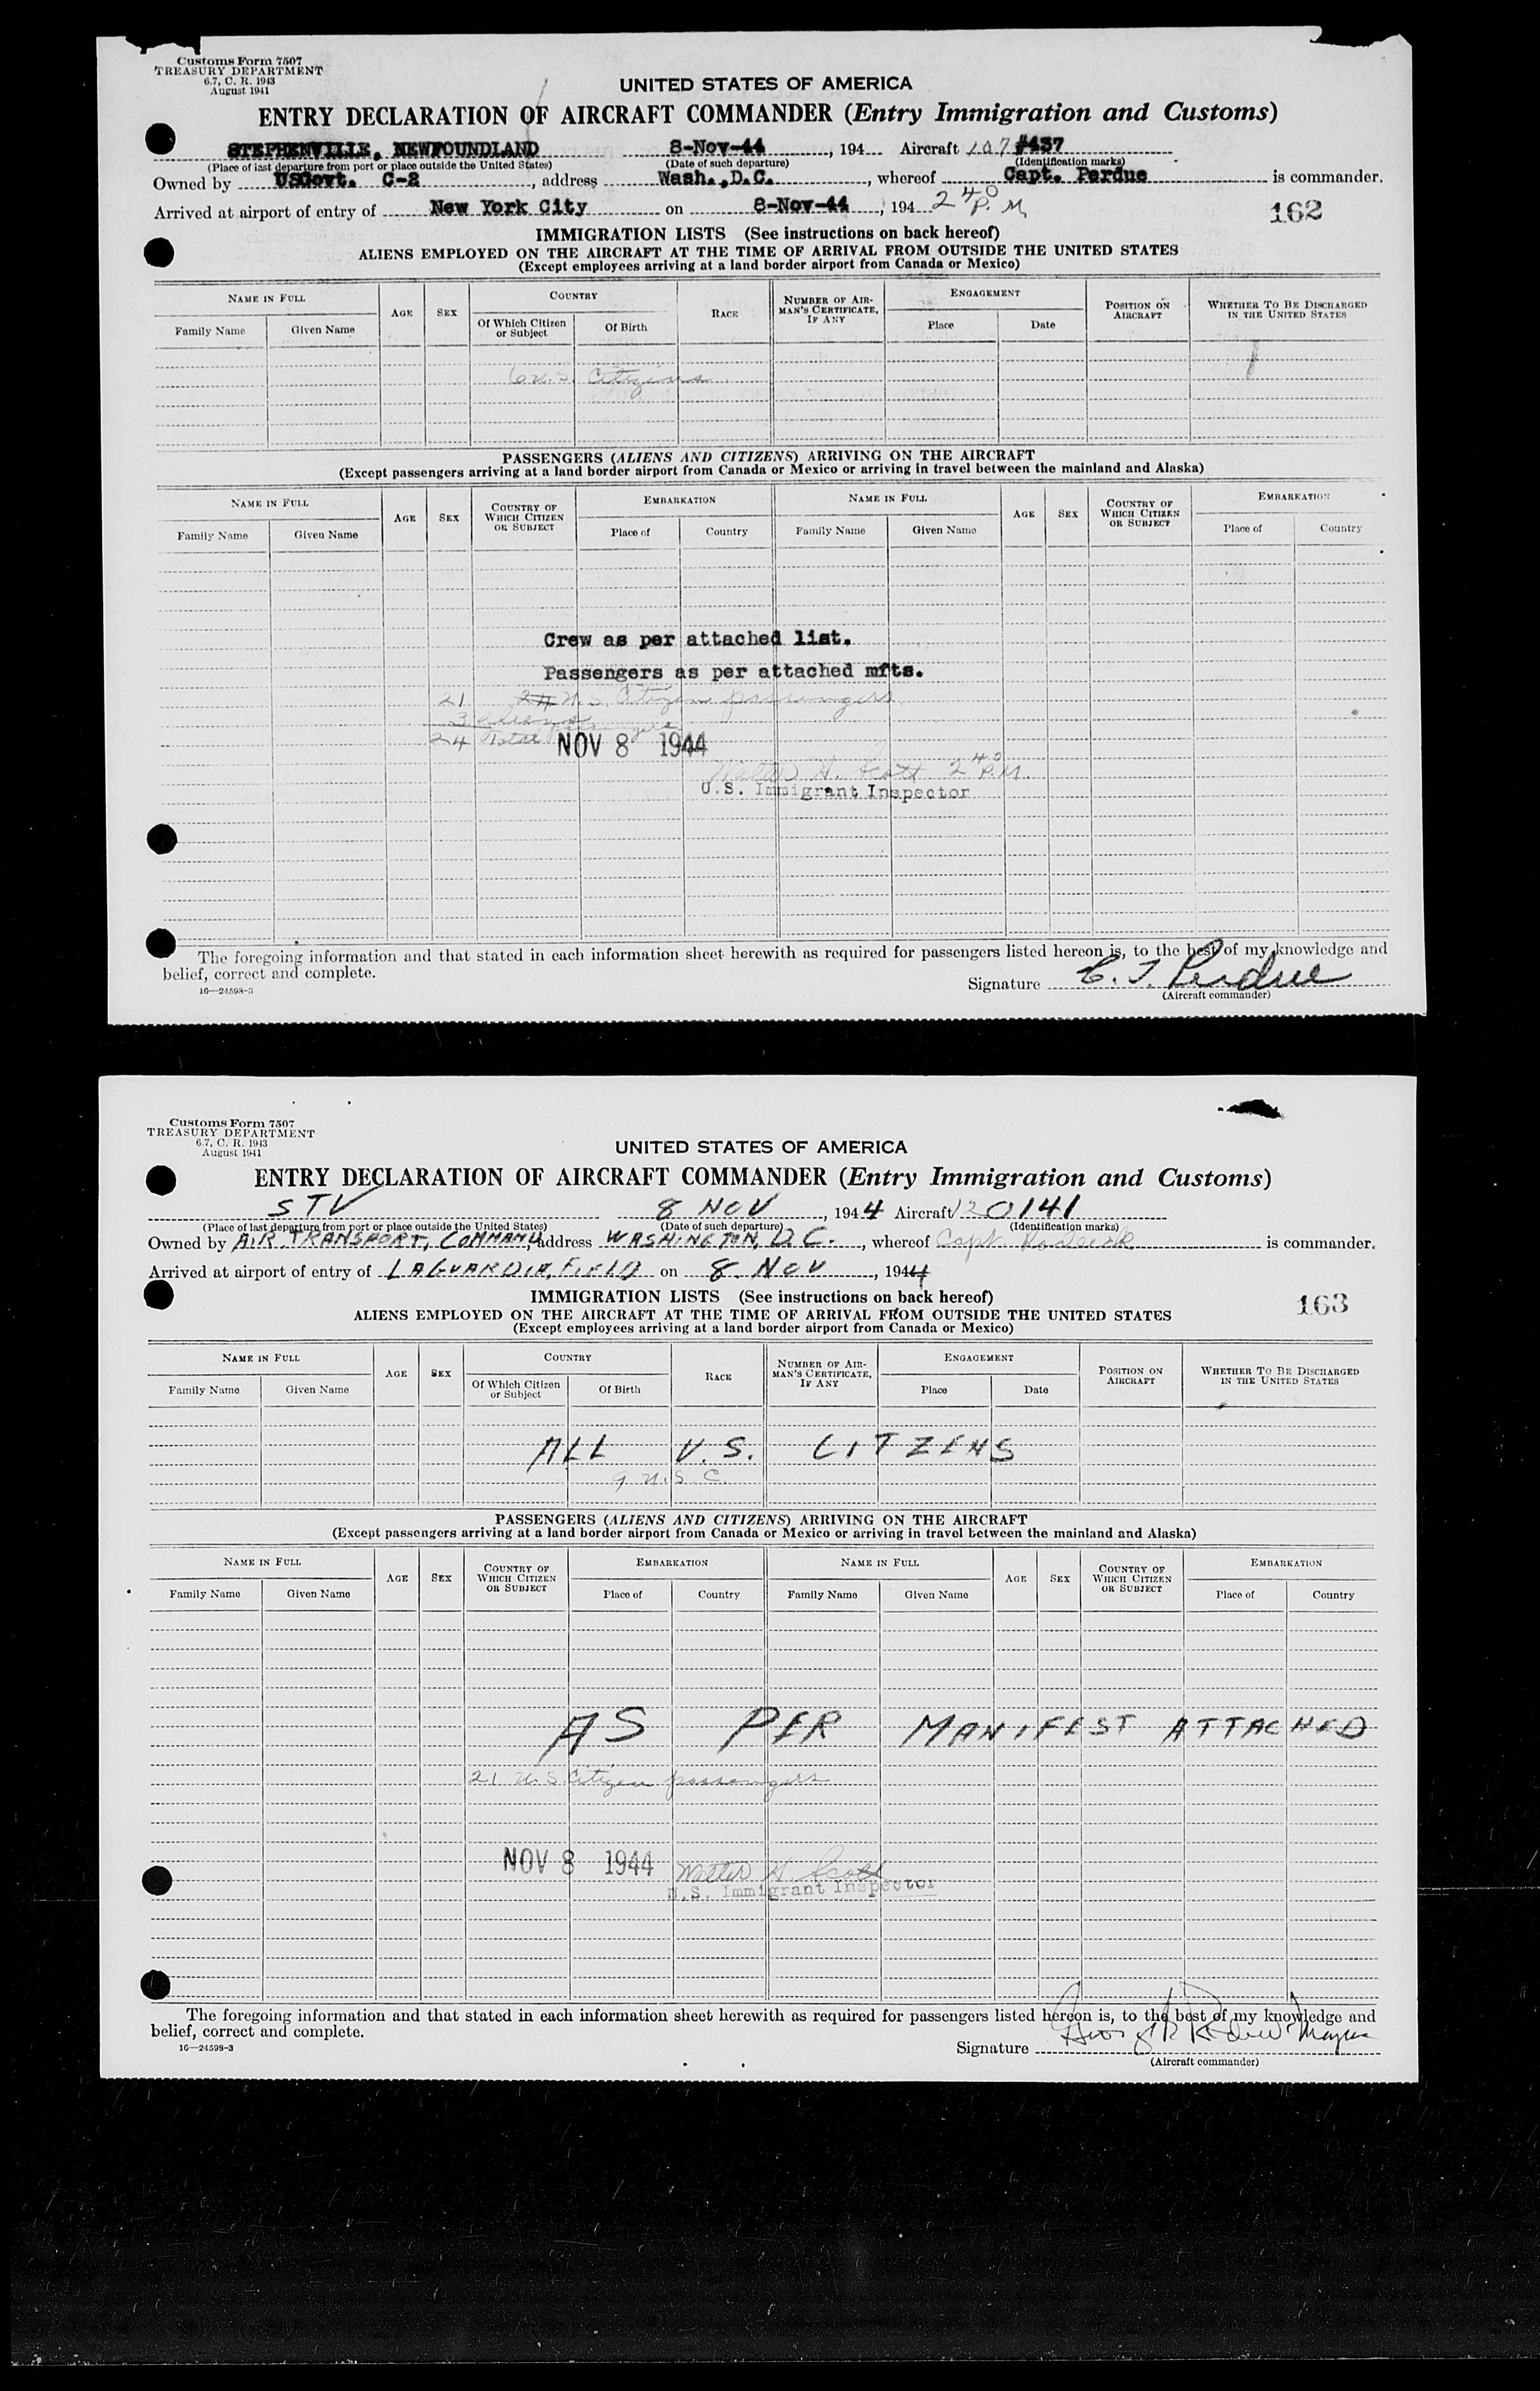 Customs Form 7507
TREASURY DEPARTMENT
6.7, C. R. 1943
August 1941
UNITED STATES OF AMERICA
ENTRY DECLARATION OF AIRCRAFT COMMANDER (Entry Immigration and Customs)
STEPHENVILLE, NEWFOUNDLAND 8-Nov-44, 194 Aircraft 107 #437
(Place of last departure from port or place outside the United States) (Date of such departure) (Identification marks)
Owned by USGovt. C-2, address Wash.,D.C., whereof Capt. Perdue is commander.
Arrived at airport of entry of New York City on 8-Nov-44, 194 2 40 P.M
162
IMMIGRATION LISTS (See instructions on back hereof)
ALIENS EMPLOYED ON THE AIRCRAFT AT THE TIME OF ARRIVAL FROM OUTSIDE THE UNITED STATES
(Except employees arriving at a land border airport from Canada or Mexico)
NAME IN FULL AGE SEX COUNTRY RACE NUMBER OF AIRMAN'S CERTIFICATE, IF ANY ENGAGEMENT POSITION ON AIRCRAFT WHETHER TO BE DISCHARGED IN THE UNITED STATES
Family Name Given Name Of Which Citizen or Subject Of Birth Place Date
6 U.S. Citizens
PASSENGERS (ALIENS AND CITIZENS) ARRIVING ON THE AIRCRAFT
(Except passengers arriving at a land border airport from Canada or Mexico or arriving in travel between the mainland and Alaska)
NAME IN FULL AGE SEX COUNTRY OF WHICH CITIZEN OR SUBJECT EMBARKATION NAME IN FULL AGE SEX COUNTRY OF WHICH CITIZEN OR SUBJECT EMBARKATION
Family Name Given Name Place of Country Family Name Given Name Place of Country
Crew as per attached list.
Passengers as per attached mfts.
21 24 U.S. Citizen passengers
3 aliens
24 Total passengers
NOV 8 1944
Walter A. Scott 2 40 P.M.
U.S. Immigrant Inspector
The foregoing information and that stated in each information sheet herewith as required for passengers listed hereon is, to the best of my knowledge and
belief, correct and complete.
16—24598-3
Signature C. T. Perdue
(Aircraft commander)
Customs Form 7507
TREASURY DEPARTMENT
6.7, C. R. 1943
August 1941
UNITED STATES OF AMERICA
ENTRY DECLARATION OF AIRCRAFT COMMANDER (Entry Immigration and Customs)
STV 8 NOV, 1944 Aircraft 120141
(Place of last departure from port or place outside the United States) (Date of such departure) (Identification marks)
Owned by AIR TRANSPORT, COMMAND, address WASHINGTON, D.C., whereof Capt. is commander.
Arrived at airport of entry of LAGUARDIA, FIELD on 8 NOV, 1944
163
IMMIGRATION LISTS (See instructions on back hereof)
ALIENS EMPLOYED ON THE AIRCRAFT AT THE TIME OF ARRIVAL FROM OUTSIDE THE UNITED STATES
(Except employees arriving at a land border airport from Canada or Mexico)
NAME IN FULL AGE SEX COUNTRY RACE NUMBER OF AIRMAN'S CERTIFICATE, IF ANY ENGAGEMENT POSITION ON AIRCRAFT WHETHER TO BE DISCHARGED IN THE UNITED STATES
Family Name Given Name Of Which Citizen or Subject Of Birth Place Date
ALL U.S. CITZENS
9 U.S.C.
PASSENGERS (ALIENS AND CITIZENS) ARRIVING ON THE AIRCRAFT
(Except passengers arriving at a land border airport from Canada or Mexico or arriving in travel between the mainland and Alaska)
NAME IN FULL AGE SEX COUNTRY OF WHICH CITIZEN OR SUBJECT EMBARKATION NAME IN FULL AGE SEX COUNTRY OF WHICH CITIZEN OR SUBJECT EMBARKATION
Family Name Given Name Place of Country Family Name Given Name Place of Country
AS PER MANIFEST ATTACHED
21 U.S. Citizen passengers
NOV 8 1944 Walter A. Scott
U.S. Immigrant Inspector
The foregoing information and that stated in each information sheet herewith as required for passengers listed hereon is, to the best of my knowledge and
belief, correct and complete.
16—24598-3
Signature
(Aircraft commander)